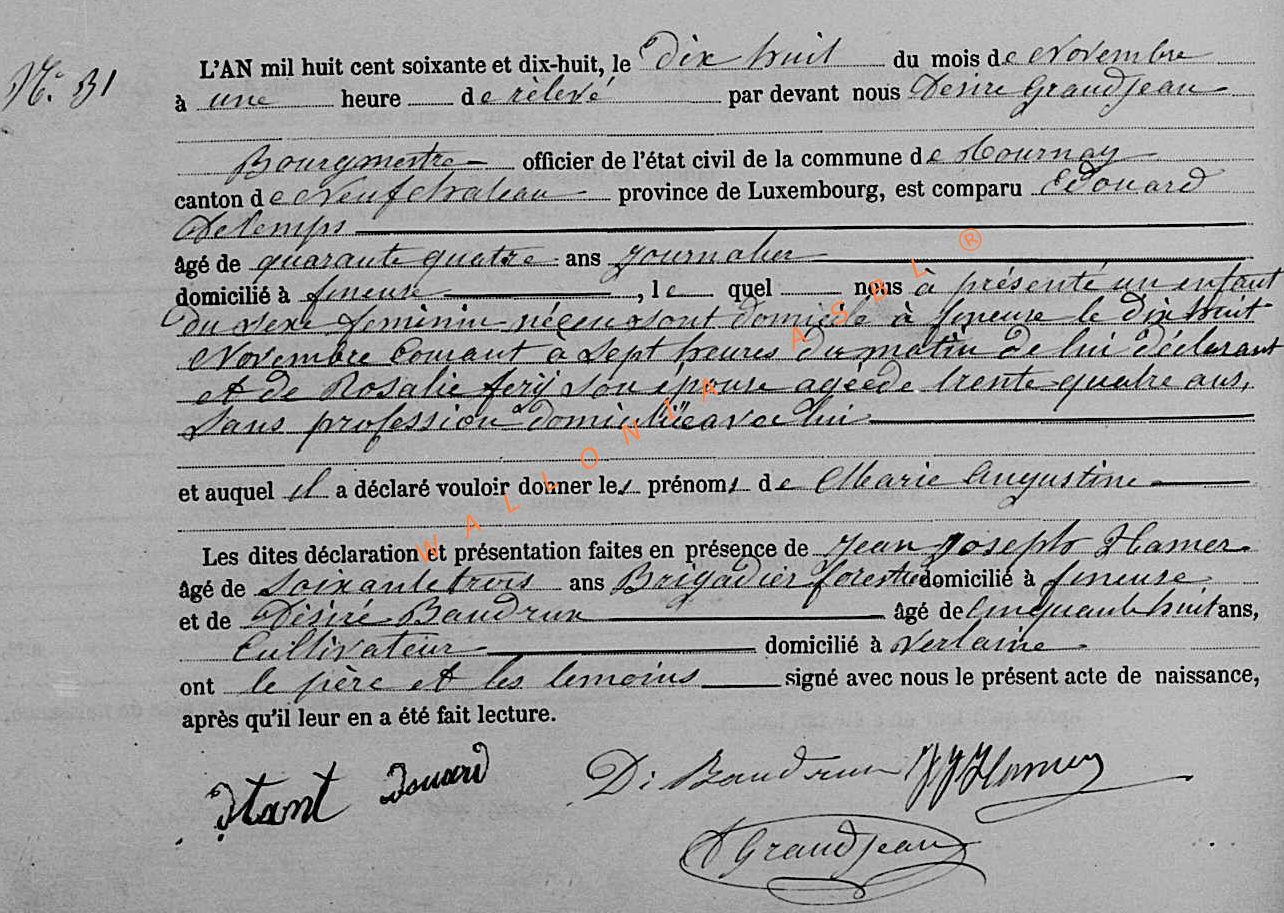 N° 31
L'AN mil huit cent soixante et dix-huit, le dix huit du mois de Novembre
à une heure de rélevé par devant nous Désiré Grandjean
Bourgmestre officier de l'état civil de la commune de Tournay
canton de Neufchateau province de Luxembourg, est comparu Edouard
Detemps
âgé de quarante quatre ans Journalier
domicilié à fineuse, le quel nous à présenté un enfant
du sexe feminin née en sont domicile à fineuse le dix huit
Novembre Courant à Sept heures du matin de lui déclarant
et de Rosalie fery son épouse agée de trente quatre ans,
Sans profession domiciliée avec lui
et auquel il a déclaré vouloir donner les prénoms de Marie Augustine
Les dites déclaration et présentation faites en présence de Jean Joseph Hamer
âgé de Soixante trois ans Brigadier forestier domicilié à fineuse
et de Désiré Baudrux âgé de Cinquante huit ans,
Cultivateur domicilié à Verlaine
ont le père et les temoins signé avec nous le présent acte de naissance,
après qu'il leur en a été fait lecture.
D. Baudrux JJ Hamer
D Grandjean
WALLONIA ASBL ®